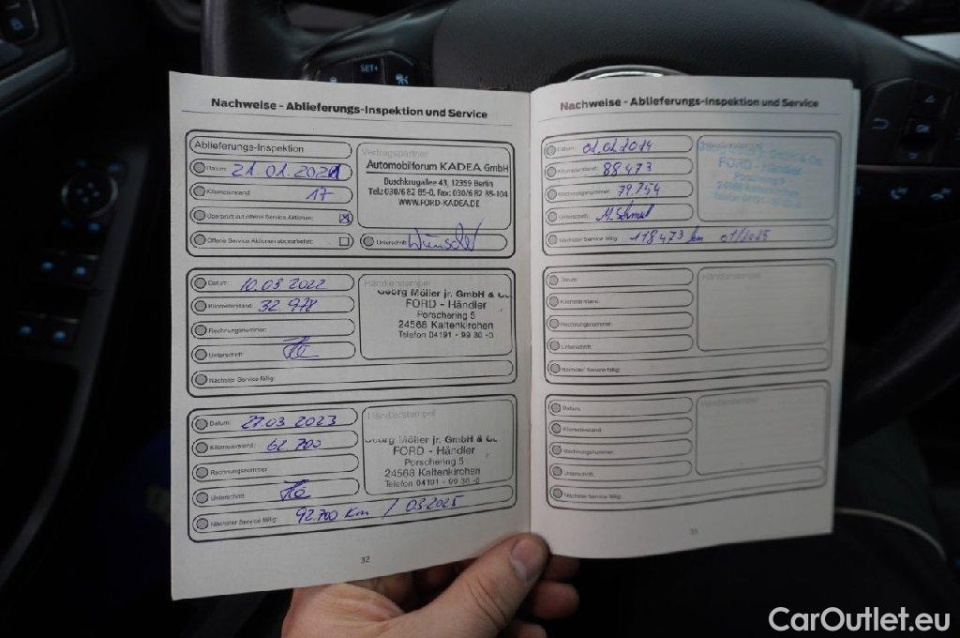 SET+
Nachweise - Ablieferungs-Inspektion und Service
Ablieferungs-Inspektion
Datum: 21.01.2021
Kilometerstand: 17
Überprüft auf offene Service Aktionen:
Offene Service Aktionen abgearbeitet:
Vertragspartner
Automobilforum KADEA GmbH
Buschkrugallee 43, 12359 Berlin
Tel.: 030/6 82 85-0, Fax: 030/6 82 85-104
WWW.FORD-KADEA.DE
Unterschrift:
Datum: 10.03 2022
Kilometerstand: 32 978
Rechnungsnummer:
Unterschrift:
Nächster Service fällig:
Händlerstempel
Georg Möller jr. GmbH & Co.
FORD - Händler
Porschering 5
24568 Kaltenkirchen
Telefon 04191 - 99 30 -0
Datum: 27.03 2023
Kilometerstand: 62 700
Rechnungsnummer:
Unterschrift:
Nächster Service fällig: 92.700 Km / 03.2025
Händlerstempel
Georg Möller jr. GmbH & Co.
FORD - Händler
Porschering 5
24568 Kaltenkirchen
Telefon 04191 - 99 30 -0
32
Nachweise - Ablieferungs-Inspektion und Service
Datum:
Kilometerstand: 88473
Rechnungsnummer: 79.754
Unterschrift:
Nächster Service fällig: 118473 km 01/2025
FORD - Händler
Porschering 5
24568 Kaltenkirchen
Datum:
Kilometerstand:
Rechnungsnummer:
Unterschrift:
Nächster Service fällig:
Händlerstempel
Datum:
Kilometerstand:
Rechnungsnummer:
Unterschrift:
Nächster Service fällig:
Händlerstempel
33
CarOutlet.eu